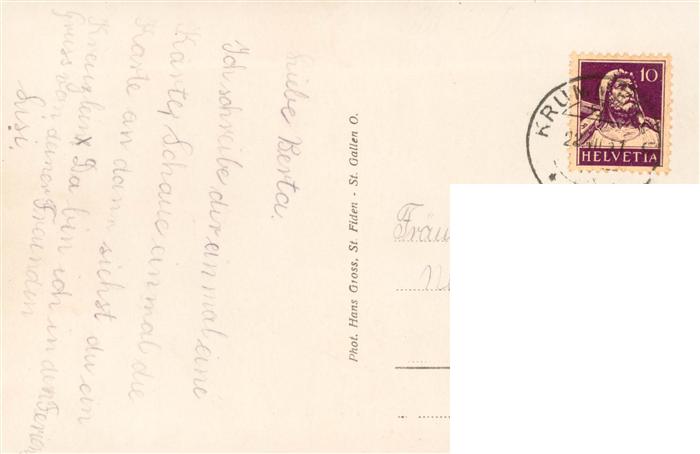 Liebe Berta.
Ich schreibe dir einmal eine
Karte, Schaue einmal die
Karte an dann siehst du ein
Kreuzlein X Da bin ich in den Ferien
Gruss von deiner Freundin
Lisi.
Phot. Hans Gross, St. Fiden - St. Gallen O.
KRUM
10
HELVETIA
Fräu